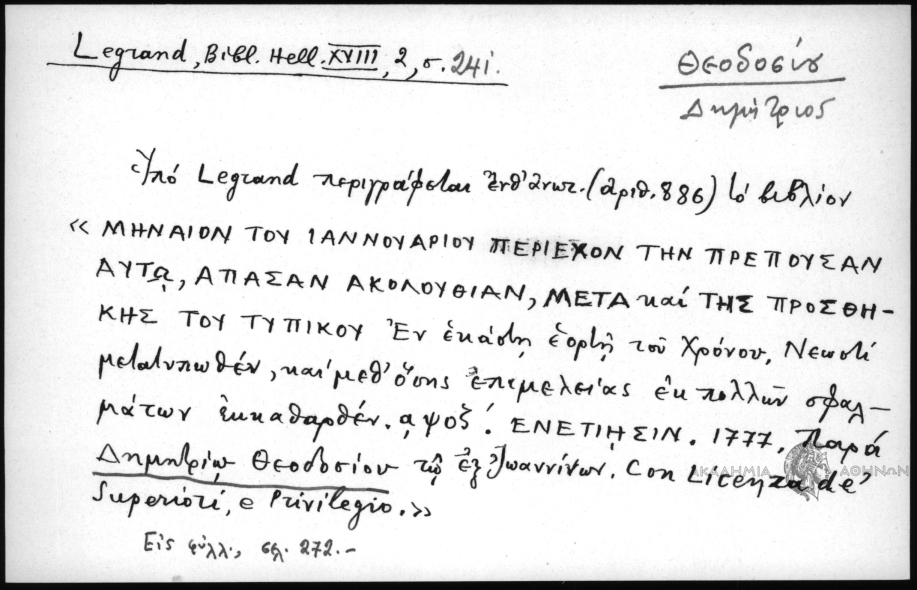 Legrand, Βιβλ. Hell. XVIII, 2, σ. 241.
Θεοδοσίου
Δημήτριος
Ὑπό Legrand περιγράφεται ἐνθ' ἀνωτ. (ἀριθ. 886) τό βιβλίον
« ΜΗΝΑΙΟΝ ΤΟΥ ΙΑΝΝΟΥΑΡΙΟΥ ΠΕΡΙΕΧΟΝ ΤΗΝ ΠΡΕΠΟΥΣΑΝ
ΑΥΤῼ, ΑΠΑΣΑΝ ΑΚΟΛΟΥΘΙΑΝ, ΜΕΤΑ καί ΤΗΣ ΠΡΟΣΘΗ-
ΚΗΣ ΤΟΥ ΤΥΠΙΚΟΥ Ἐν ἑκάστῃ ἑορτῇ τοῦ Χρόνου, Νεωστί
μετατυπωθέν, καί μεθ' ὅσης ἐπιμελείας ἐκ πολλῶν σφαλ-
μάτων ἐκκαθαρθέν. αψοζ΄. ΕΝΕΤΙΗΣΙΝ. 1777. Παρά
Δημητρίῳ Θεοδοσίου τῷ ἐξ Ἰωαννίνων. Con Licenza de'
Superiori, e Privilegio.»
Εἰς φύλλ., σελ. 272.-
ΑΚΑΔΗΜΙΑ ΑΘΗΝΩΝ